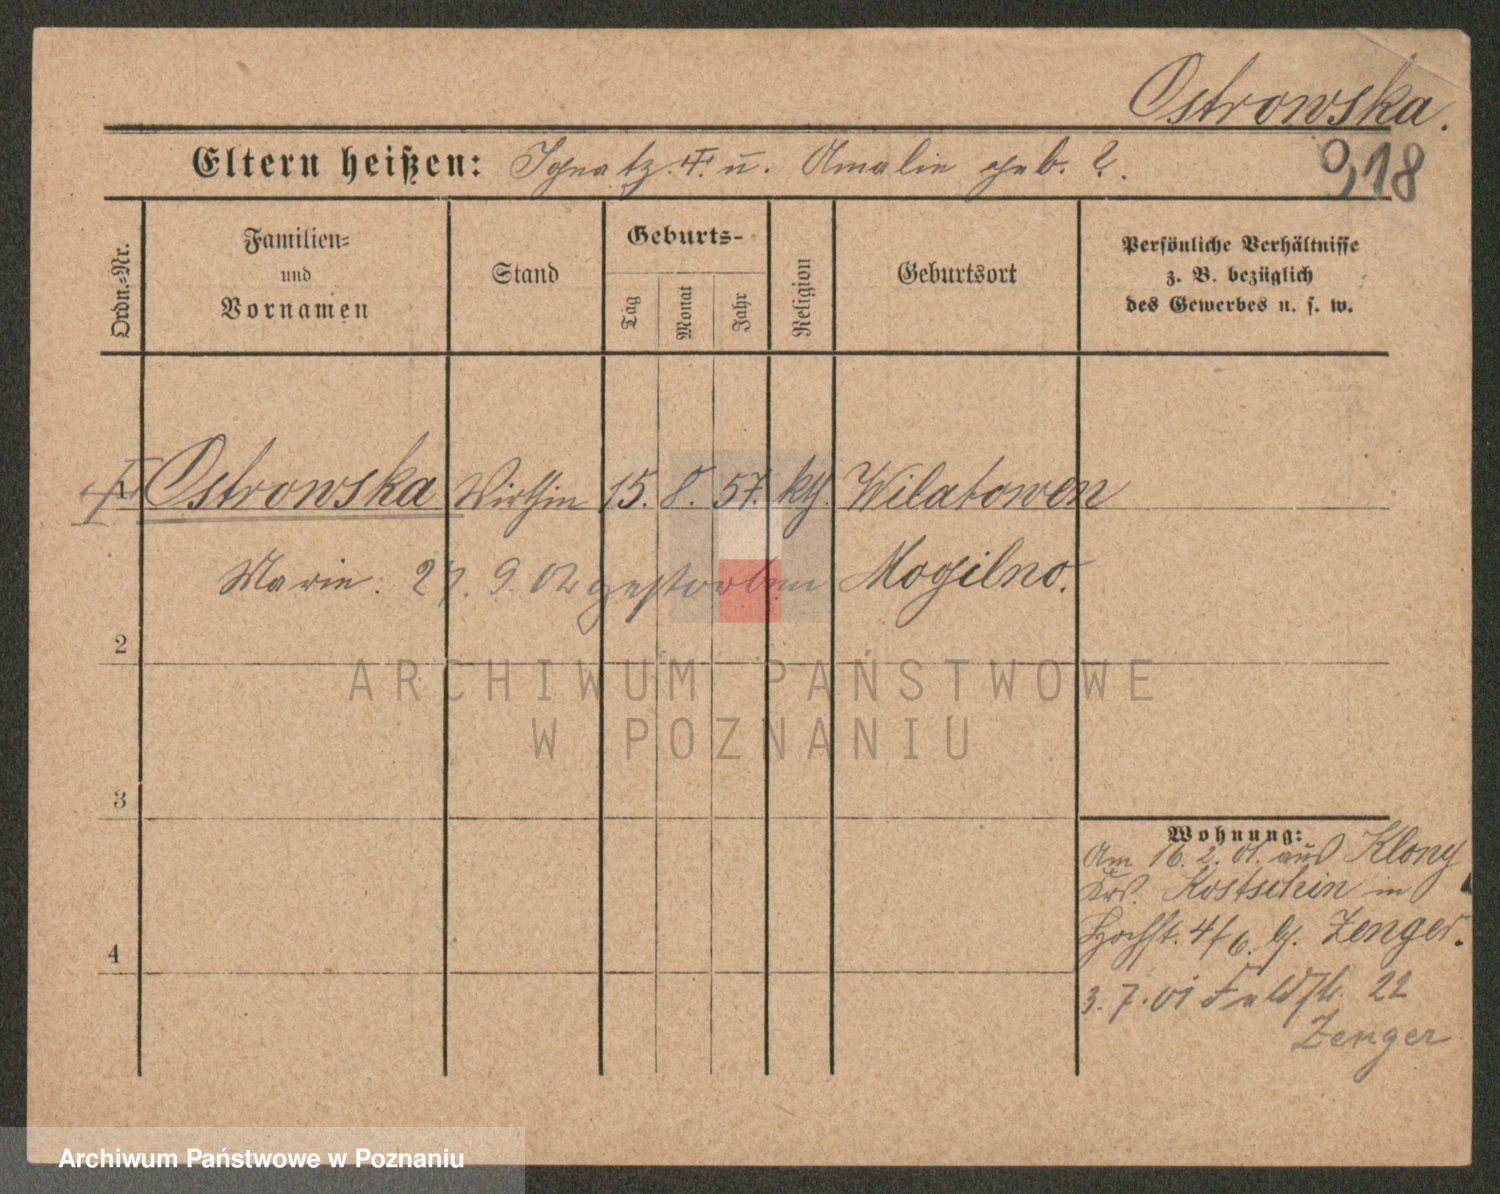 Ostrowska.
Eltern heißen: Ignatz. ✝. u. Amalie geb. ?.
918
Ordn.-Nr.
Familien-
und
Vornamen
Stand
Geburts-
Tag
Monat
Jahr
Religion
Geburtsort
Persönliche Verhältnisse
z. B. bezüglich
des Gewerbes u. s. w.
1 Ostrowska Wirthin 15. 8. 57. kth. Wilatowen
Marie. 27. 9. 02 gestorben Mogilno.
2
ARCHIWUM PAŃSTWOWE
W POZNANIU
3
Wohnung:
Am 16. 2. 01. aus Klony
Krs. Kostschin in
Hochst. 4/6. b. Zenger.
4
3. 7. 01 Feldstr. 22
Zenger
Archiwum Państwowe w Poznaniu